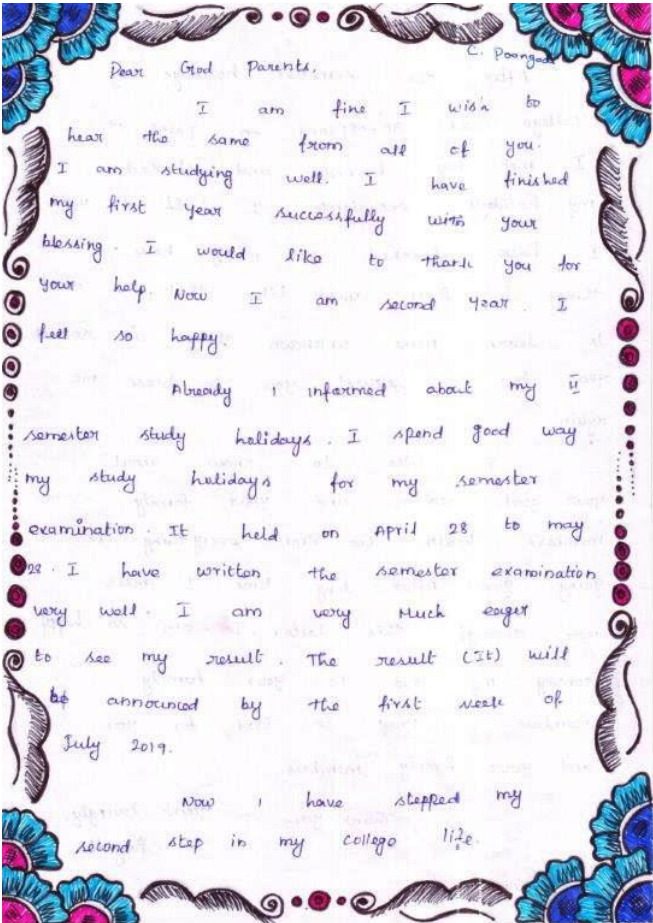 C. Poongodi
Dear God Parents,
I am fine I wish to
hear the same from all of you.
I am studying well. I have finished
my first year successfully with your
blessing. I would like to thank you for
your help. Now I am second year. I
feel so happy.
Already I informed about my II
semester study holidays. I spend good way
my study holidays for my semester
examination. It held on April 28 to may
28. I have written the semester examination
very well. I am very much eager
to see my result. The result (It) will
be announced by the first week of
July 2019.
Now I have stepped my
second step in my college life.